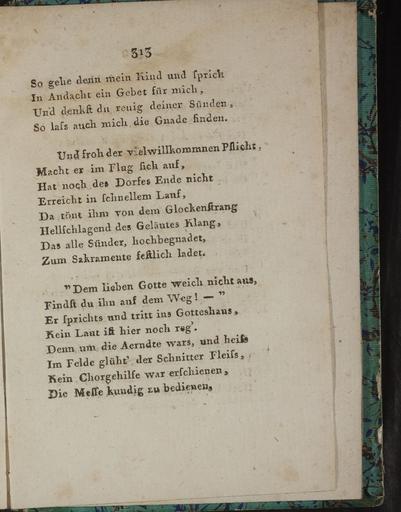 313
So gehe denn mein Kind und sprich
In Andacht ein Gebet für mich,
Und denkſt du reuig deiner Sünden,
So laſs auch mich die Gnade finden.
Und froh der vielwillkommnen Pflicht,
Macht er im Flug ſich auf,
Hat noch des Dorfes Ende nicht
Erreicht in ſchnellem Lauf,
Da tönt ihm von dem Glockenſtrang
Hellſchlagend des Geläutes Klang,
Das alle Sünder, hochbegnadet,
Zum Sakramente feſtlich ladet.
"Dem lieben Gotte weich nicht aus,
Findſt du ihn auf dem Weg! — "
Er ſprichts und tritt ins Gotteshaus,
Kein Laut iſt hier noch reg'.
Denn um die Aerndte wars, und heiſs
Im Felde glüht' der Schnitter Fleiſs,
Kein Chorgehilfe war erſchienen,
Die Meſſe kundig zu bedienen,